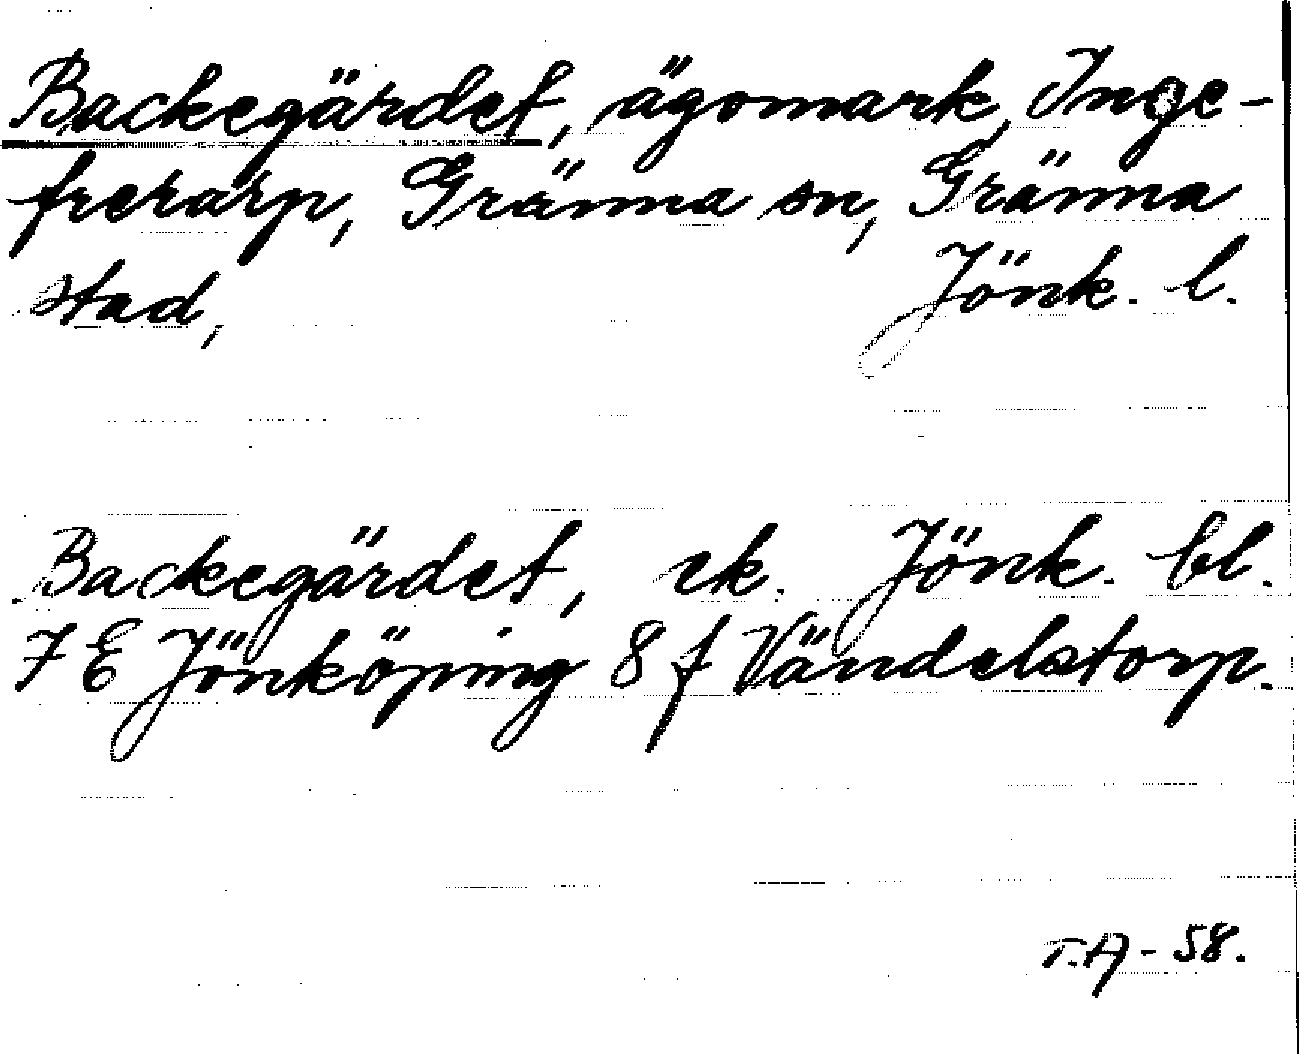 Backegärdet, ägomark, Inge-
frerarp, Gränna sn, Gränna
stad, Jönk. l.
Backegärdet, ek. Jönk. bl.
7 E Jönköping 8 f Vändelstorp.
T.A - 58.